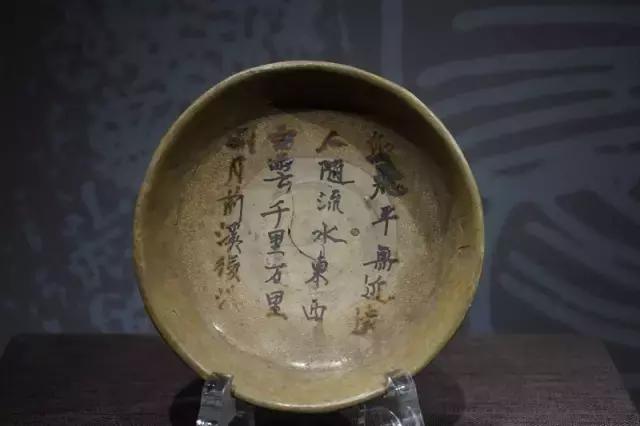 鳥飛平無近遠
人隨流水東西
白雲千里万里
明月前溪後溪